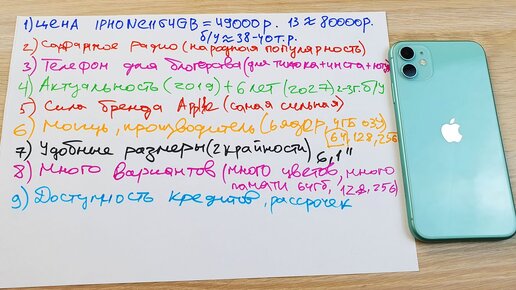 1) ЦЕНА IPHONE 11 64GB = 49000 р. 13 ≈ 80000 р.
б/у ≈ 38-40 т.р.
2) Сарфарное радио (народная популярность)
3) Телефон для блогерова (для тиктока + инста +
4) Актуальность (2019) + 6 лет (2027) 2-3г. б/у
5) Сила бренда Apple (самая сильная)
6) Мощь, производитель (6 ядер, 4гб ОЗУ)
64, 128, 256
7) Удобные размеры (2 крайности) 6,1"
8) Много вариантов (много цветов, много
памяти 64гб, 128, 256)
9) Доступность кредитов, рассрочек